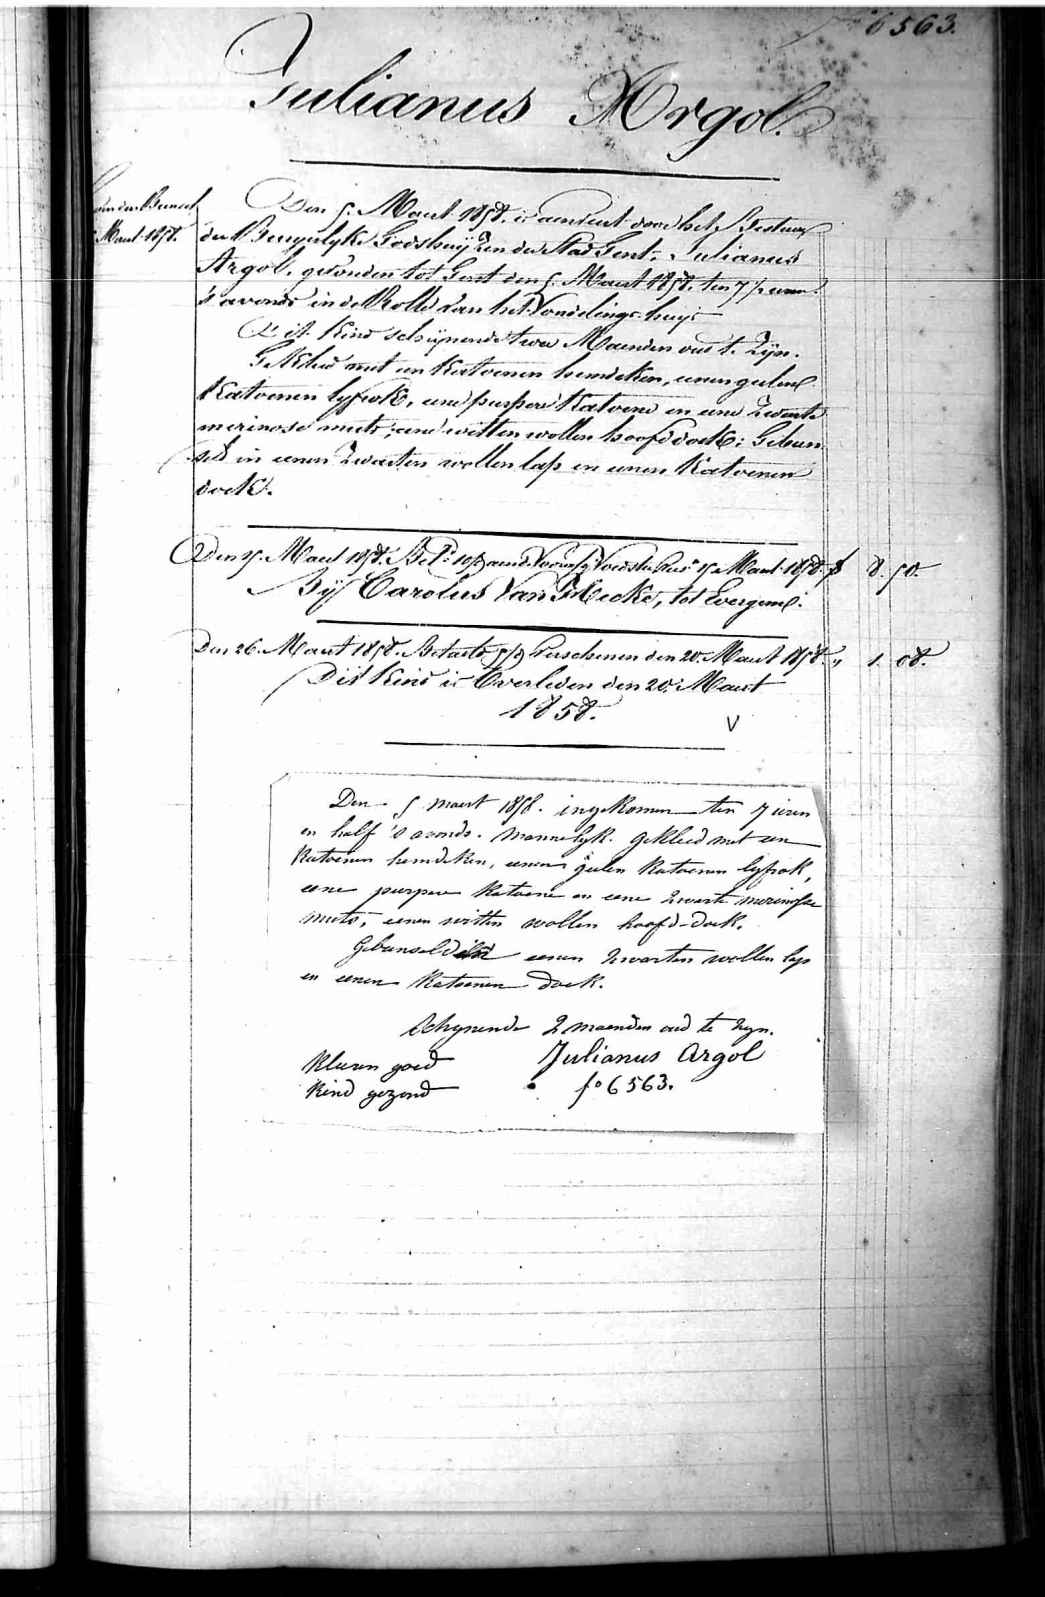 6563.
Julianus Argol.
Maert 1858.
Den 5. Maert 1858. is aenveirt door het Bestuur
der Burgerlyke Godshuyzen der Stad Gent: Julianus
Argol, gevonden tot Gent den 5. Maert 1858. ten 7½ uren
's avonds in de Rolle van het Vondelings-huys
Dit Kind schijnende twee Maenden oud te Zijn.
Gekleed met een Katoenen hemdeken, eenen geelen
Katoenen lyfrok, eene purpere Katoene en eene Zwarte
merinose muts; eene witten wollen hoofddoek: Gebun-
seld in eenen Zwarten wollen lap en eenen Katoenen
doek.
Den 15. Maert 1858. 15 Maert 1858 f 8. 50.
Bij Carolus Van Hecke, tot Evergem.
Den 26. Maert 1858. Betaeld Verschenen den 20. Maert 1858. " 1. 08.
Dit Kind is Overleden den 20. Maert
1858.
V
Den 5 maert 1858. ingekomen ten 7 uren
en half 's avonds. mannelyk. gekleed met een
Katoenen hemdeken, eenen geelen Katoenen lyfrok,
eene purpere Katoene en eene zwarte merinosse
muts, eenen witten wollen hoofd-doek.
Gebunseld in eenen zwarten wollen lap
en eenen Katoenen doek.
Schynende 2 maenden oud te zyn.
Kleeren goed Julianus Argol
Kind gezond fo 6563.